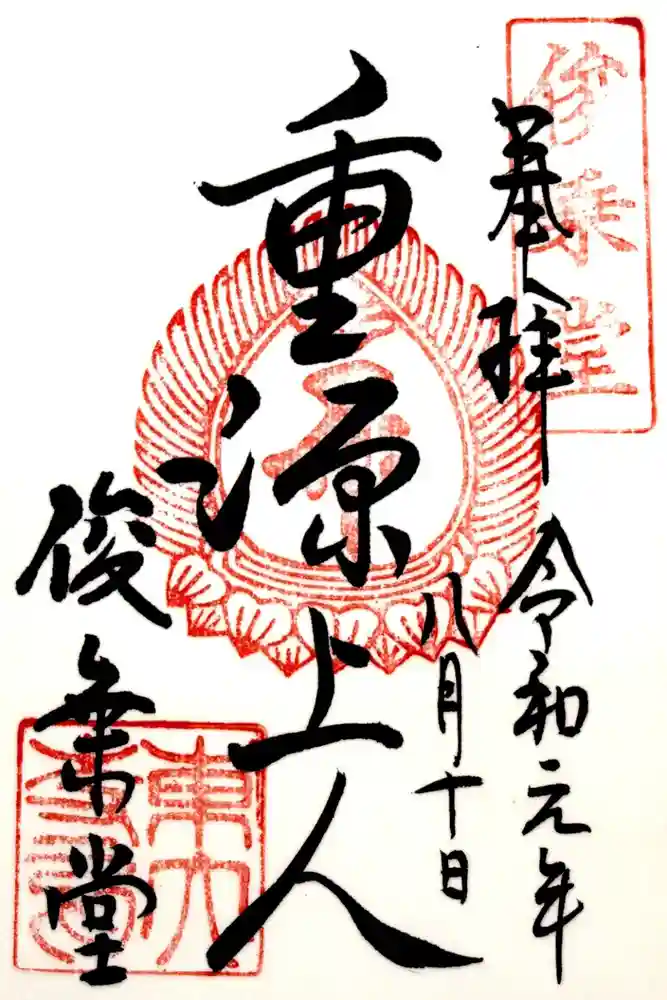 俊乗堂
奉拝
令和元年
八月十日
重源上人
俊乗堂
東大寺